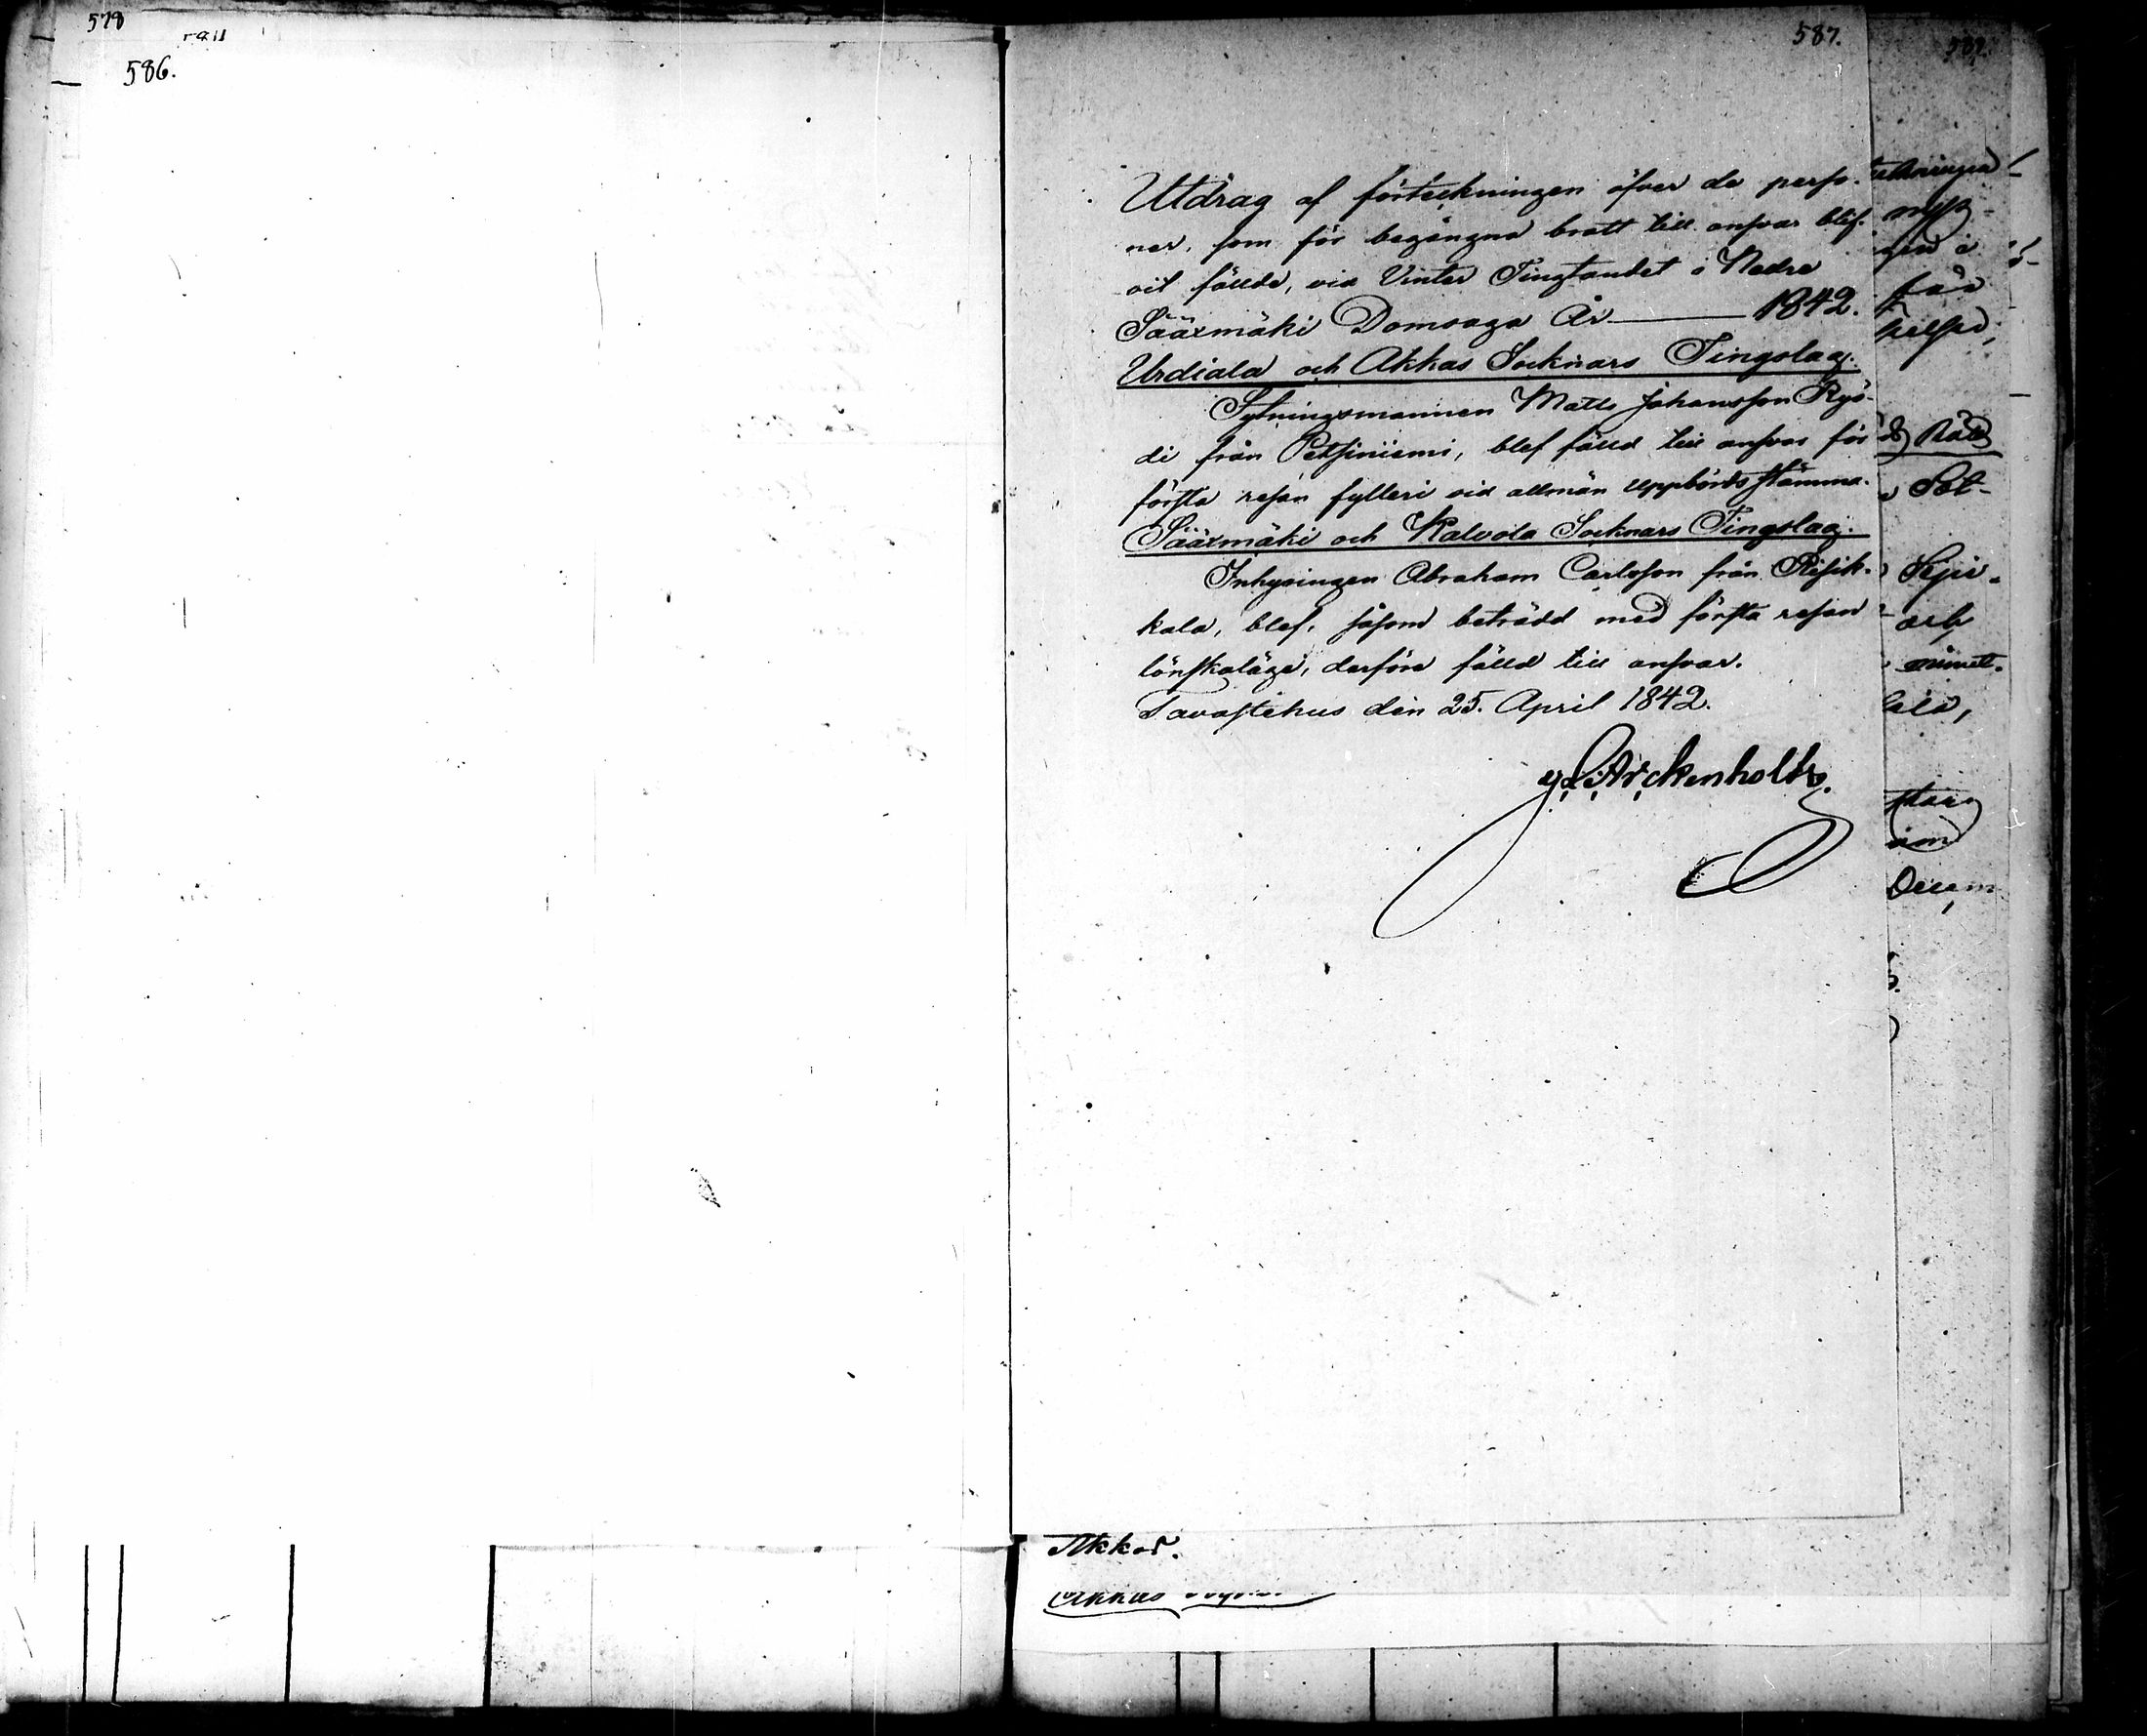 578
586.
587.
Utdrag af förteckningen öfver de perso-
ner, som för begångna brott till ansvar blif-
vit fällde, vid Vinter Tingtandet i Nedre
Sääxmäki Domsaga År 1842.
Urdiala och Akkas Socknars Tingslag.
Sytningsmannen Matts Johansson Ryö-
di från Petsiniemi, blef fälld till ansvar för
första resan fylleri vid allmän Uppbördsstämma.
Sääxmäki och Kalvola Socknars Tingslag.
Inhysingen Abraham Carlsson från Ritsik-
kala, blef, såsom beträdd med första resan
lönskaläge, derföre fälld till ansvar.
Tavastehus den 25. April 1842.
Arckenholtz.
Akkas.
Akkas